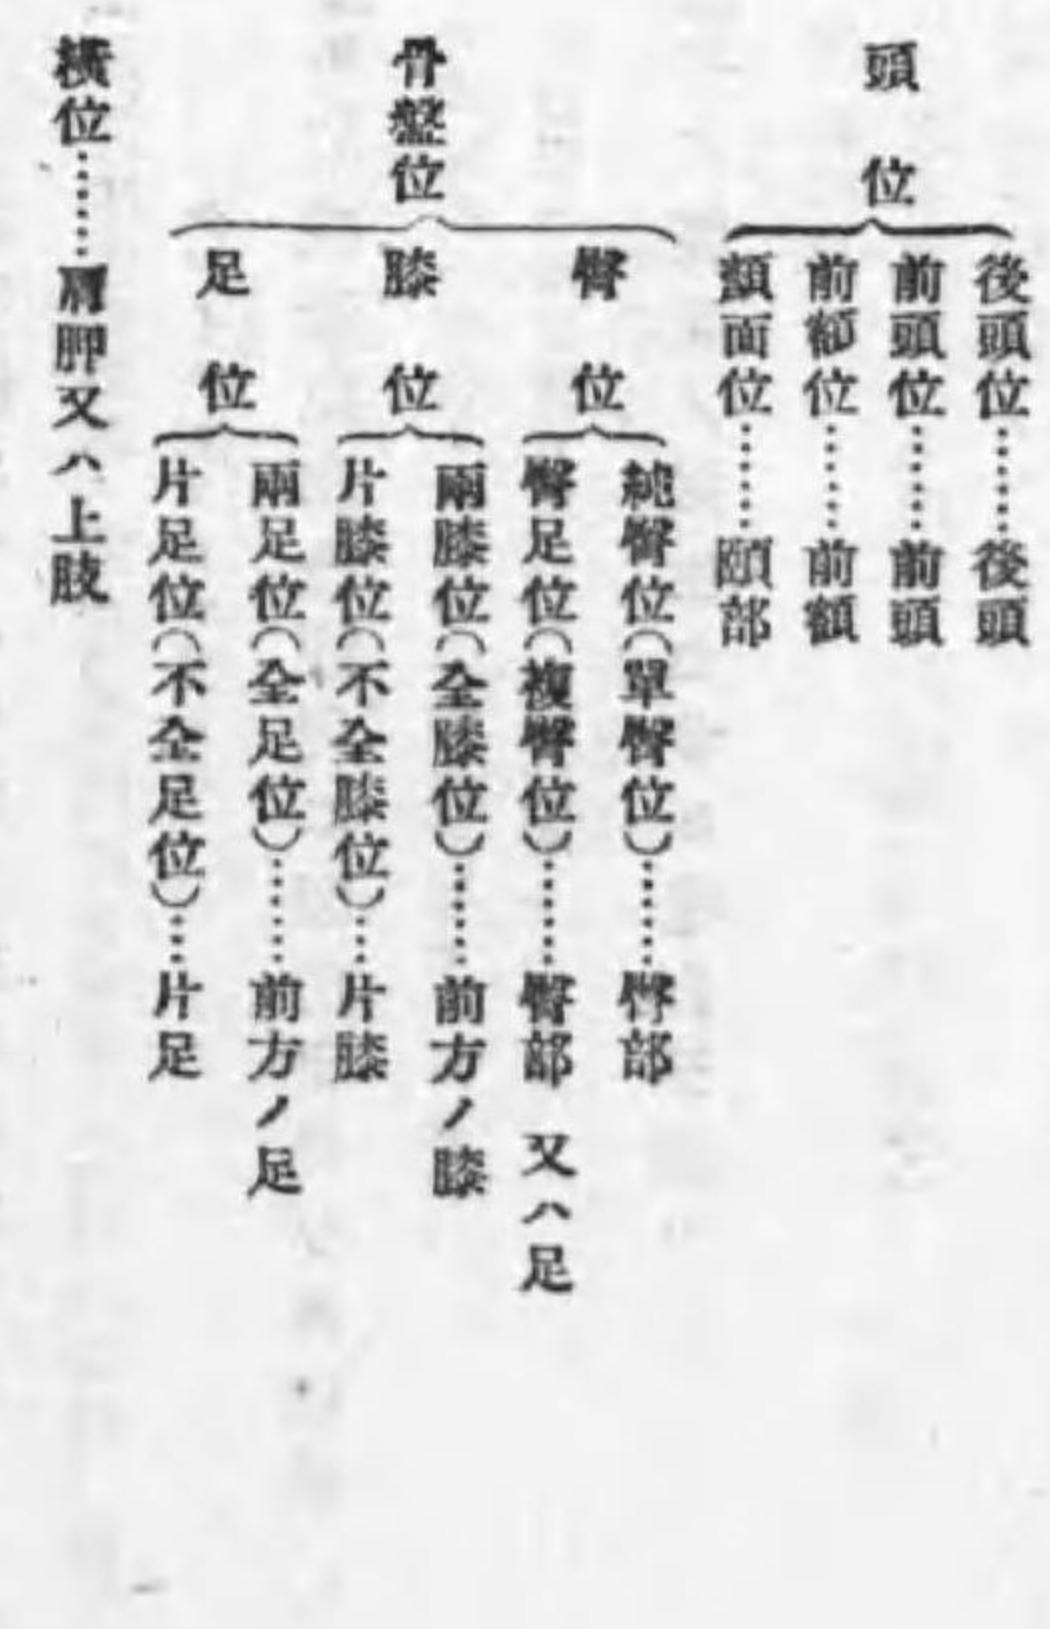 頭位
後頭位……後頭
前頭位……前頭
前額位……前額
顏面位……頤部
骨盤位
臀位
純臀位(單臀位)……臀部
臀足位(複臀位)……臀部 又ハ足
膝位
兩膝位(全膝位)……前方ノ膝
片膝位(不全膝位)…片膝
足位
兩足位(全足位)……前方ノ足
片足位(不全足位)…片足
橫位……肩胛又ハ上肢